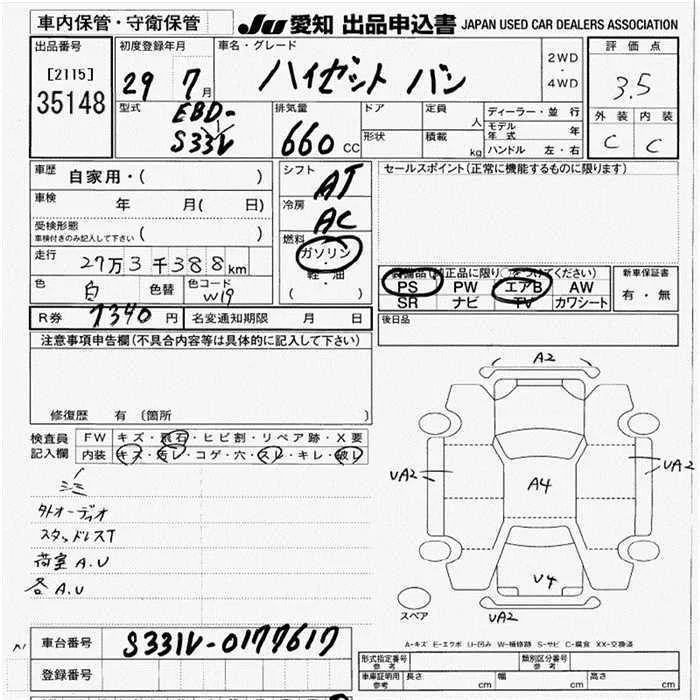 車内保管・守衛保管
JU 愛知 出品申込書 JAPAN USED CAR DEALERS ASSOCIATION
出品番号
[2115]
35148
初度登録年月
29 7月
車名・グレード
ハイゼット バン
2WD
・
4WD
評価点
3.5
外装 内装
C C
型式
EBD-
S331V
排気量
660 CC
ドア
形状
定員 人
積載 kg
ディーラー・並 行
モデル年式 年
ハンドル 左・右
車歴
自家用・( )
車検 年 月( 日)
受検形態
車検付きのみ記入して下さい ( )
走行
27万3千388km
色 白 色替 色コード W19
シフト AT
冷房 AC
燃料
ガソリン
・
軽・油
( )
セールスポイント(正常に機能するものに限ります)
装備品(純正品に限り○をつけてください)
PS PW エアB AW
SR ナビ TV カワシート
新車保証書
有・無
R券 7340円 名変通知期限 月 日
後日品
注意事項申告欄(不具合内容等は具体的に記入して下さい)
修復歴 有(箇所 )
検査員
記入欄
FW キズ・飛石・ヒビ割・リペア跡・X要
内装 キズ・汚レ・コゲ・穴・スレ・キレ・破レ
シミ
外オーディオ
スタッドレスT
荷室A.U
各A.U
A2
UA2
A4
UA2
U4
UA2
スペア
A-キズ E-エクボ U-凹み W-補修跡 S-サビ C-腐食 XX-交換済
車台番号 S331V-0177617
登録番号
形式指定番号
参考
類別区分番号
参考
車庫証明用
参考
長さ cm 幅 cm 高さ cm